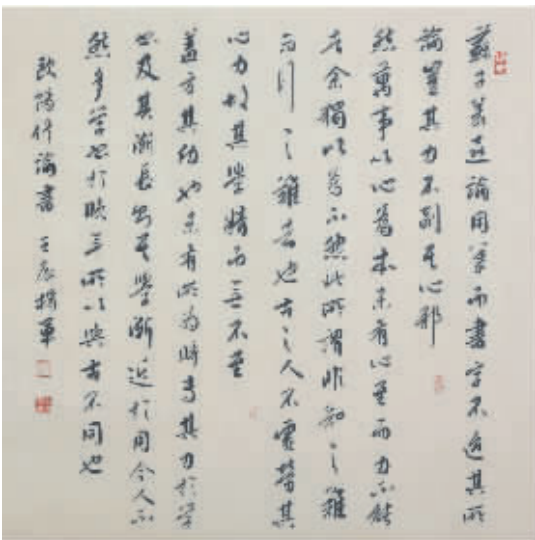 蘇子美喜論用筆而書字不迨其所
論豈其力不副其心邪
然萬事以心為本未有心至而力不能
者余獨以為不然此所謂非知之難
而行之難者也古之人不虛勞其
心力故其學精而無不至
蓋方其幼也未有所為時專其力於學
書及其漸長則其學漸近於用今人不
然多學書於晚年所以與古不同也
歐陽修論書